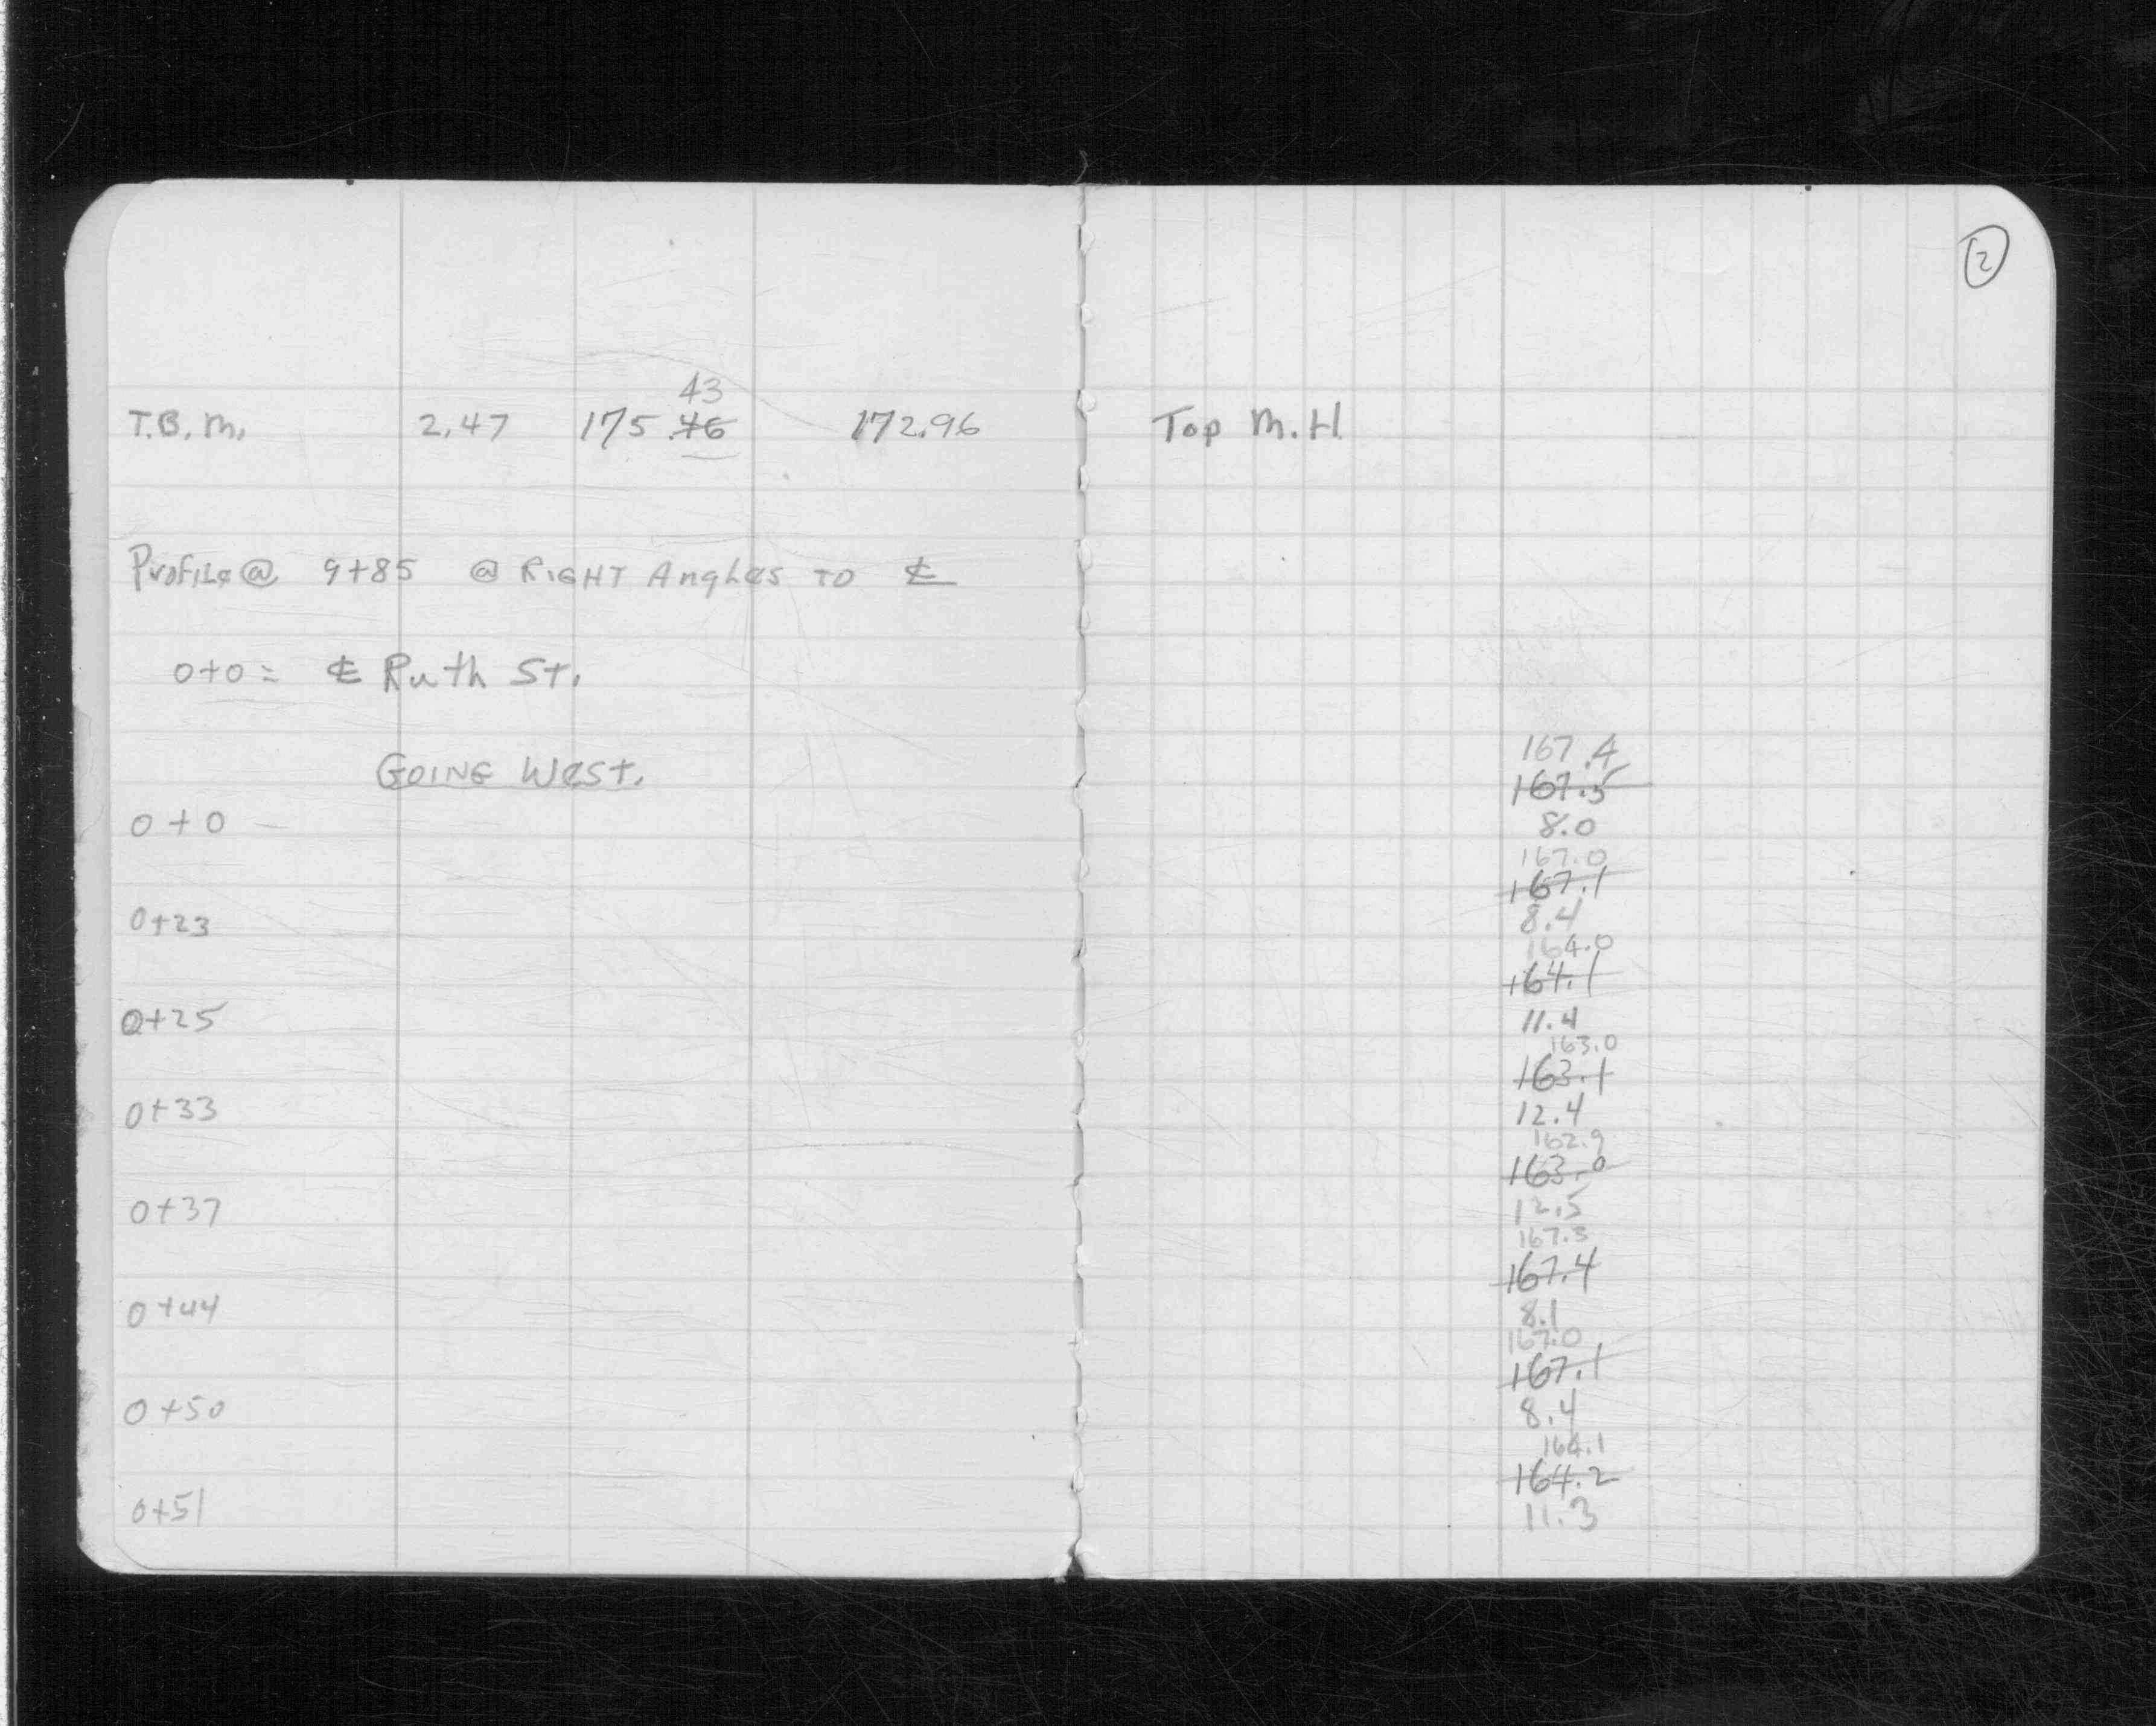 2
43
T.B.M. 2.47 175.46 172.96 Top M.H.
Profile @ 9+85 @ RIGHT Angles TO ℄
0+0 = ℄ Ruth St.
GOING West.
167.4
167.5
0+0 8.0
167.0
167.1
0+23 8.4
164.0
164.1
0+25 11.4
163.0
163.1
0+33 12.4
162.9
163.0
0+37 12.5
167.3
167.4
0+44 8.1
167.0
167.1
0+50 8.4
164.1
164.2
0+51 11.3